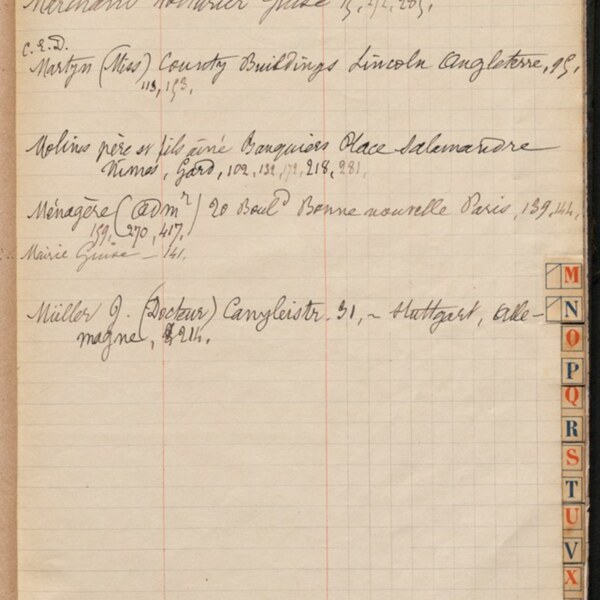 Marchand voiturier Guise 15, 
C.E.D.
Martyn (Miss) County Buildings Lincoln Angleterre, 95,
113, 153.
Molines père et fils ainé Banquiers Place Salamandre
Nimes, Gard, 102, 132, 172, 218, 281,
Ménagère (Admon) 20 Bould Bonne nouvelle Paris, 139, 144,
159, 270, 417,
Mairie Guise – 141.
Müller J. (Docteur) Canzleistr. 31, ~ Stuttgart, Alle-
magne, 214.
M
N
O
P
Q
R
S
T
U
V
X